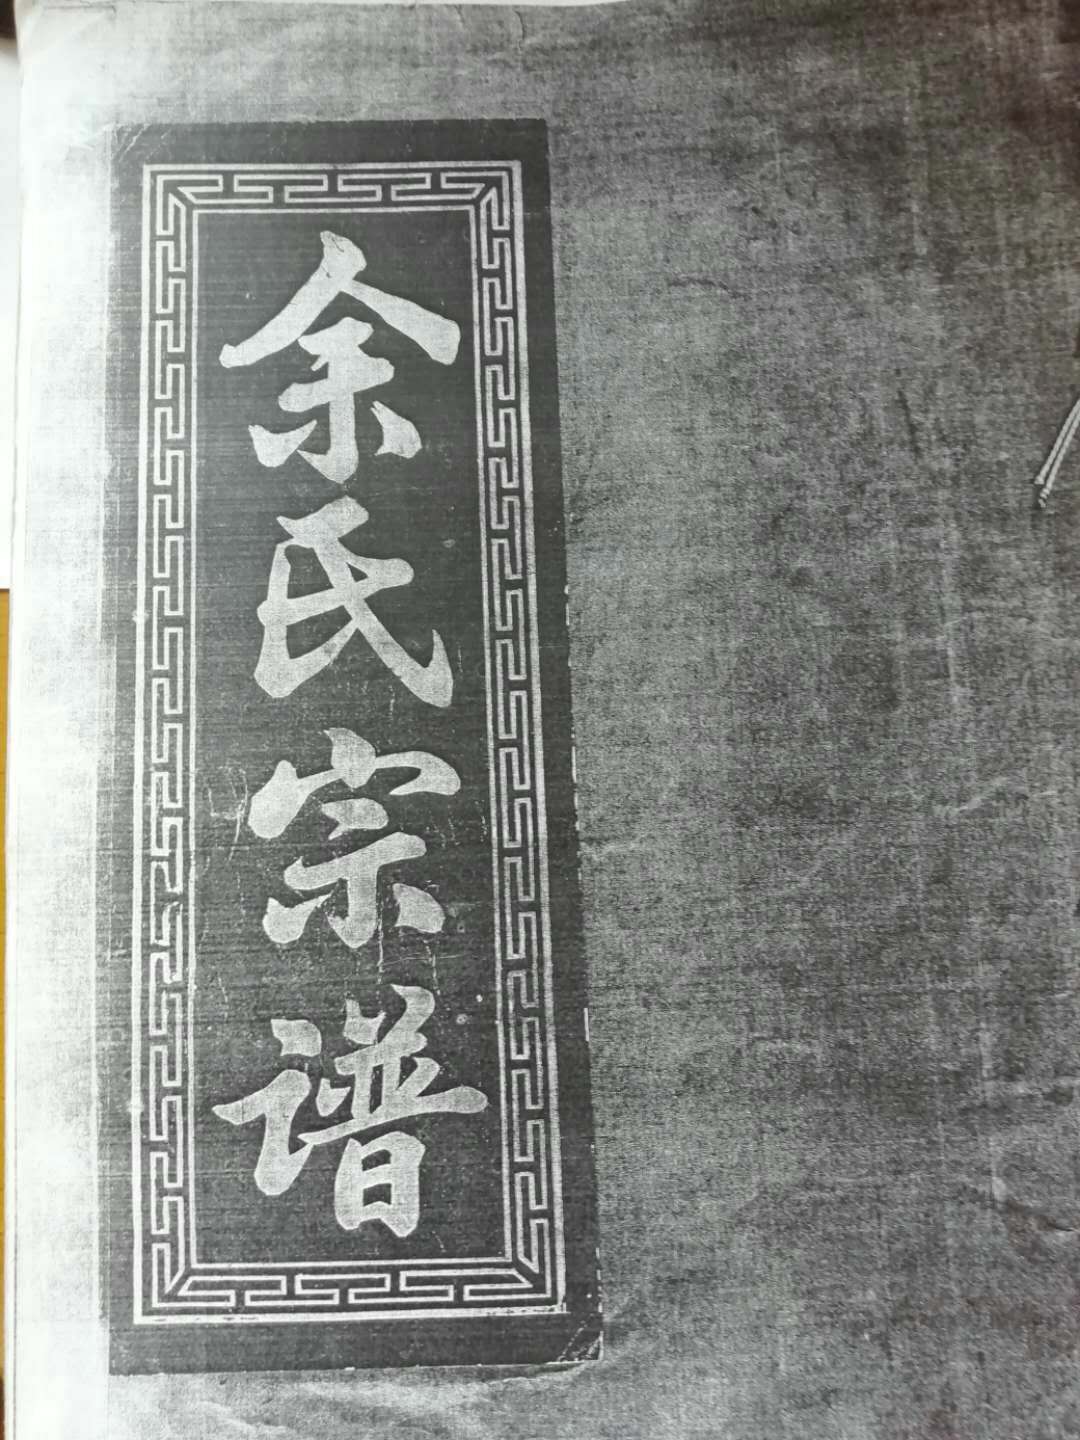 余氏宗谱